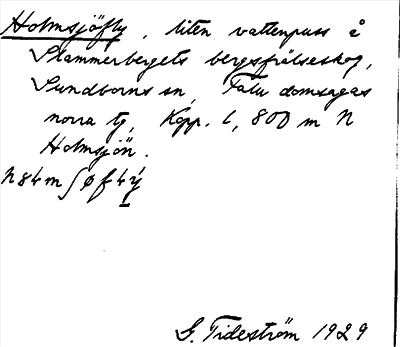 Holmsjöfly, liten vattenpuss å
Stammerbergets bergsfrälseskog,
Sundborns sn, Falu domsagas
norra tg, Kopp. l, 800 m N
Holmsjön.